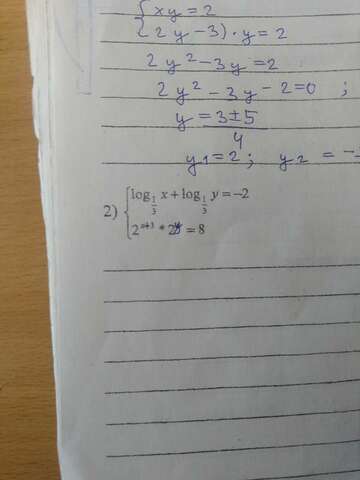 { xy = 2
{ (2y-3)·y = 2
2y² - 3y = 2
2y² - 3y - 2 = 0 ;
y = 3±5/4
y₁ = 2 ; y₂ = -
2) { log_{1/3} x + log_{1/3} y = -2